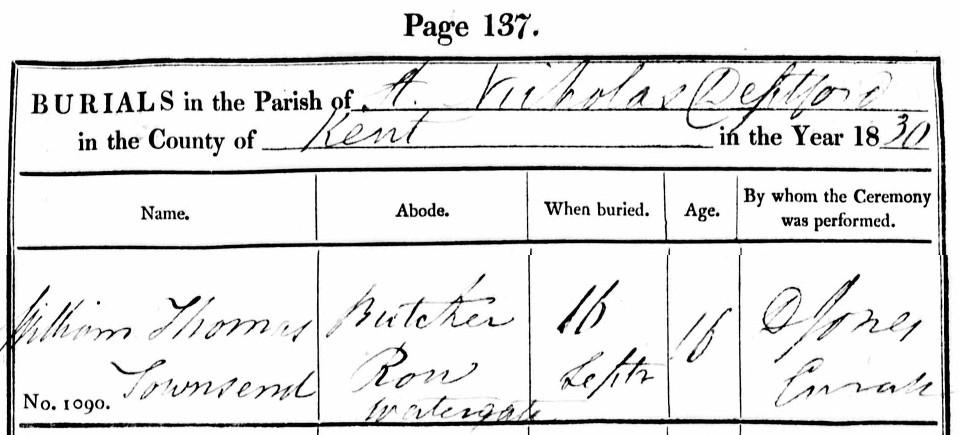 Page 137.
BURIALS in the Parish of St. Nicholas Deptford
in the County of Kent in the Year 1830
Name. Abode. When buried. Age. By whom the Ceremony was performed.
William Thomas Butcher 16 16 D Jones
Townsend Row Septr Curate
No. 1090. Watergate